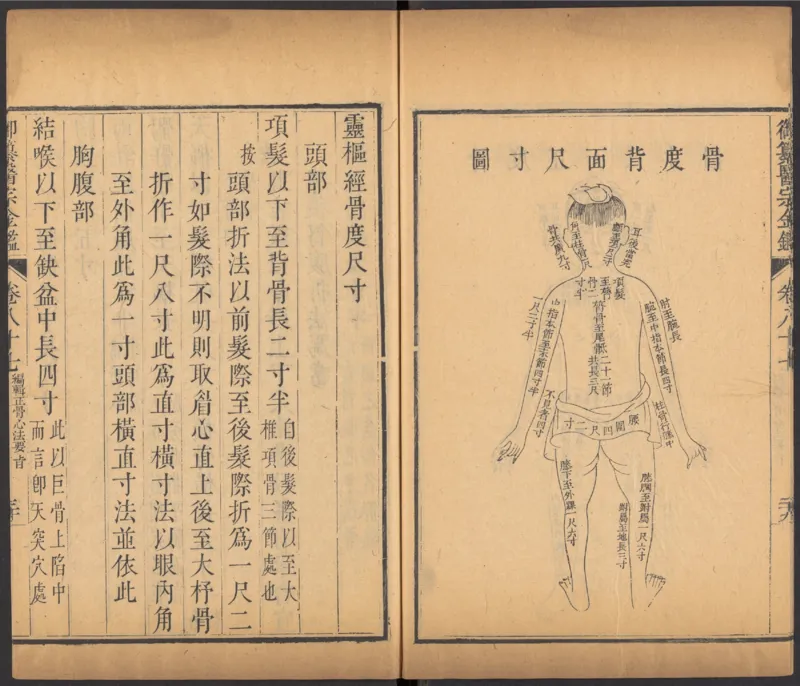 御纂醫宗金鑑
卷八十七
骨度背面尺寸圖
耳後當完
項髮
至膂
二寸
半
膂骨至尾骶二十一節
共長三尺
肘至腕長
腕至中指本節長四寸
中指本節至末節四寸半
一尺二寸半
腰圍四尺二寸
膝下至外踝一尺六寸
膝膕至跗屬一尺六寸
跗屬至地長三寸
靈樞經骨度尺寸
頭部
項髮以下至背骨長二寸半自後髮際以至大
椎項骨三節處也
按頭部折法以前髮際至後髮際折爲一尺二
寸如髮際不明則取眉心直上後至大杼骨
折作一尺八寸此爲直寸橫寸法以眼內角
至外角此爲一寸頭部橫直寸法並依此
胸腹部
結喉以下至缺盆中長四寸此以巨骨上陷中
而言卽天突穴處
御纂醫宗金鑑
卷八十七
編輯正骨心法要旨